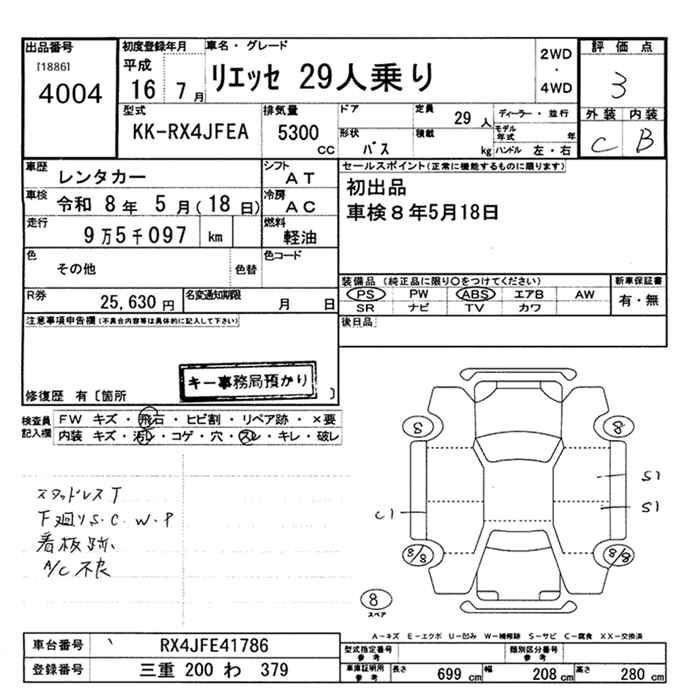 出品番号
[1886]
4004
初度登録年月
平成
16 7月
車名・グレード
リエッセ 29人乗り
2WD
・
4WD
評価点
3
型式
KK-RX4JFEA
排気量
5300 cc
ドア
定員
29 人
ディーラー・並行
形状
バス
積載
kg
モデル年式
年
ハンドル 左・右
外装 内装
C B
車歴
レンタカー
シフト
AT
車検
令和 8年 5月(18日)
冷房
AC
走行
9万5千097 km
燃料
軽油
色
その他
色替
色コード
R券
25,630円
名変通知期限
月 日
セールスポイント(正常に機能するものに限ります)
初出品
車検8年5月18日
装備品 (純正品に限り○をつけてください)
PS PW ABS エアB AW
SR ナビ TV カワ
新車保証書
有・無
後日品
注意事項申告欄(不具合内容等は具体的に記入して下さい)
キー事務局預かり
修復歴 有〔箇所 〕
検査員記入欄
FW キズ・飛石・ヒビ割・リペア跡・×要
内装 キズ・汚レ・コゲ・穴・スレ・キレ・破レ
スタッドレスT
下廻りS.C.W.P
看板跡
A/C不良
8
8
S1
S1
C1
8/8
8/8
8
スペア
A-キズ E-エクボ U-凹み W-補修跡 S-サビ C-腐食 XX-交換済
車台番号
RX4JFE41786
登録番号
三重 200 わ 379
型式指定番号
参考
類別区分番号
参考
車庫証明用
参考
長さ
699 cm
幅
208 cm
高さ
280 cm